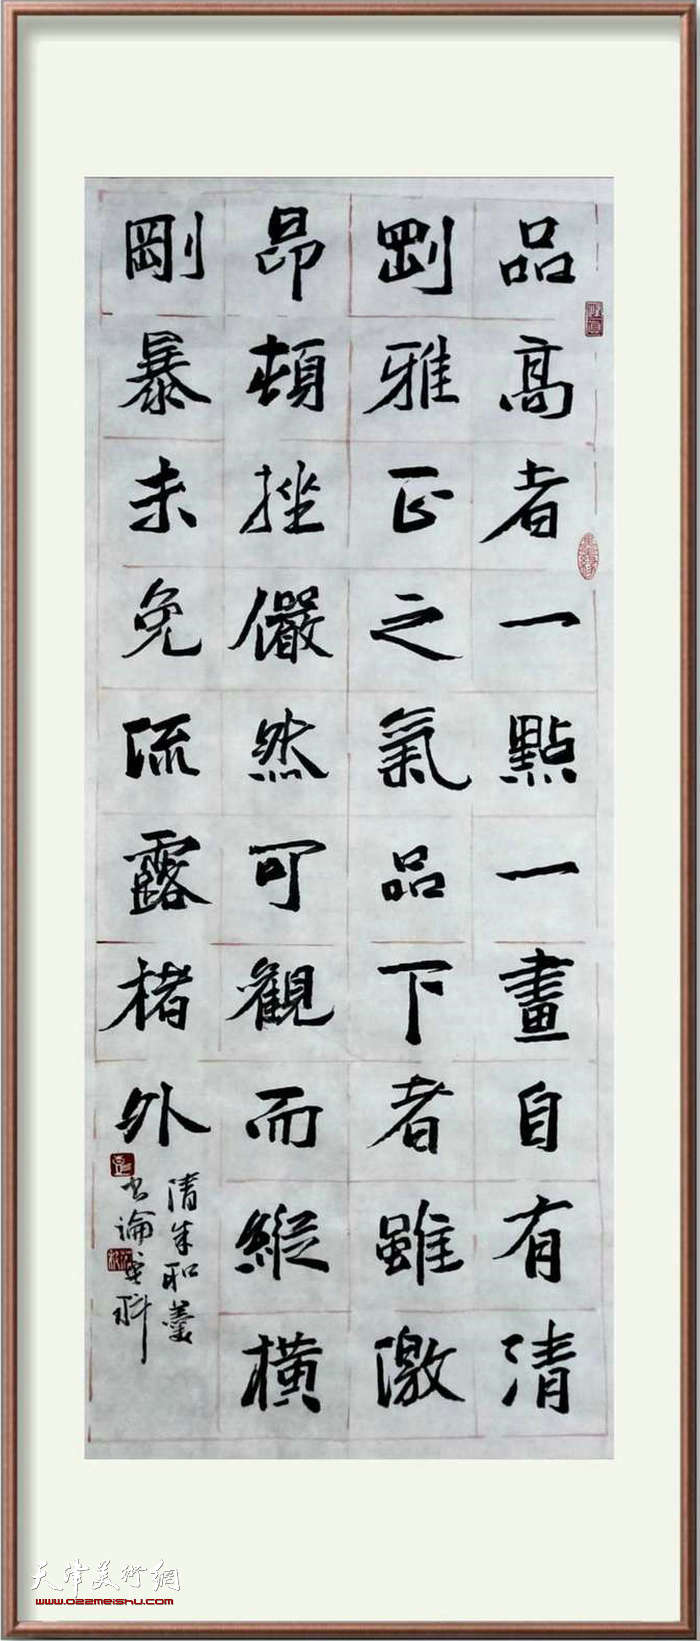 品高者一點一畫自有清
剛雅正之氣品下者雖激
昂頓挫儼然可觀而縱橫
剛暴未免流露楮外
清朱和羹
書論
天津美術網
www.022meishu.com